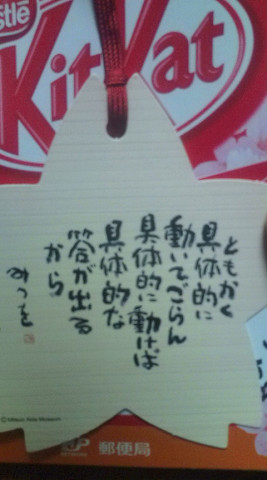 Nestle
KitKat
ともかく
具体的に
動いてごらん
具体的に動けば
具体的な
答が出る
から
みつを
©Mitsuo Aida Museum
JP 郵便局